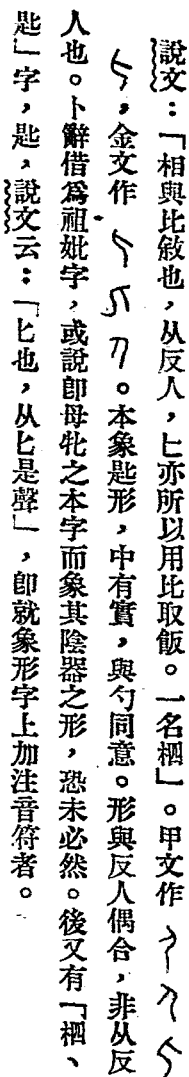 說文：「相與比敘也，从反人，匕亦所以用比取飯。一名柶」。甲文作
，金文作。本象匙形，中有實，與勺同意。形與反人偶合，非从反
人也。卜辭借爲祖妣字，或說卽母牝之本字而象其陰器之形，恐未必然。後又有「柶、
匙」字，匙，說文云：「匕也，从匕是聲」，卽就象形字上加注音符者。